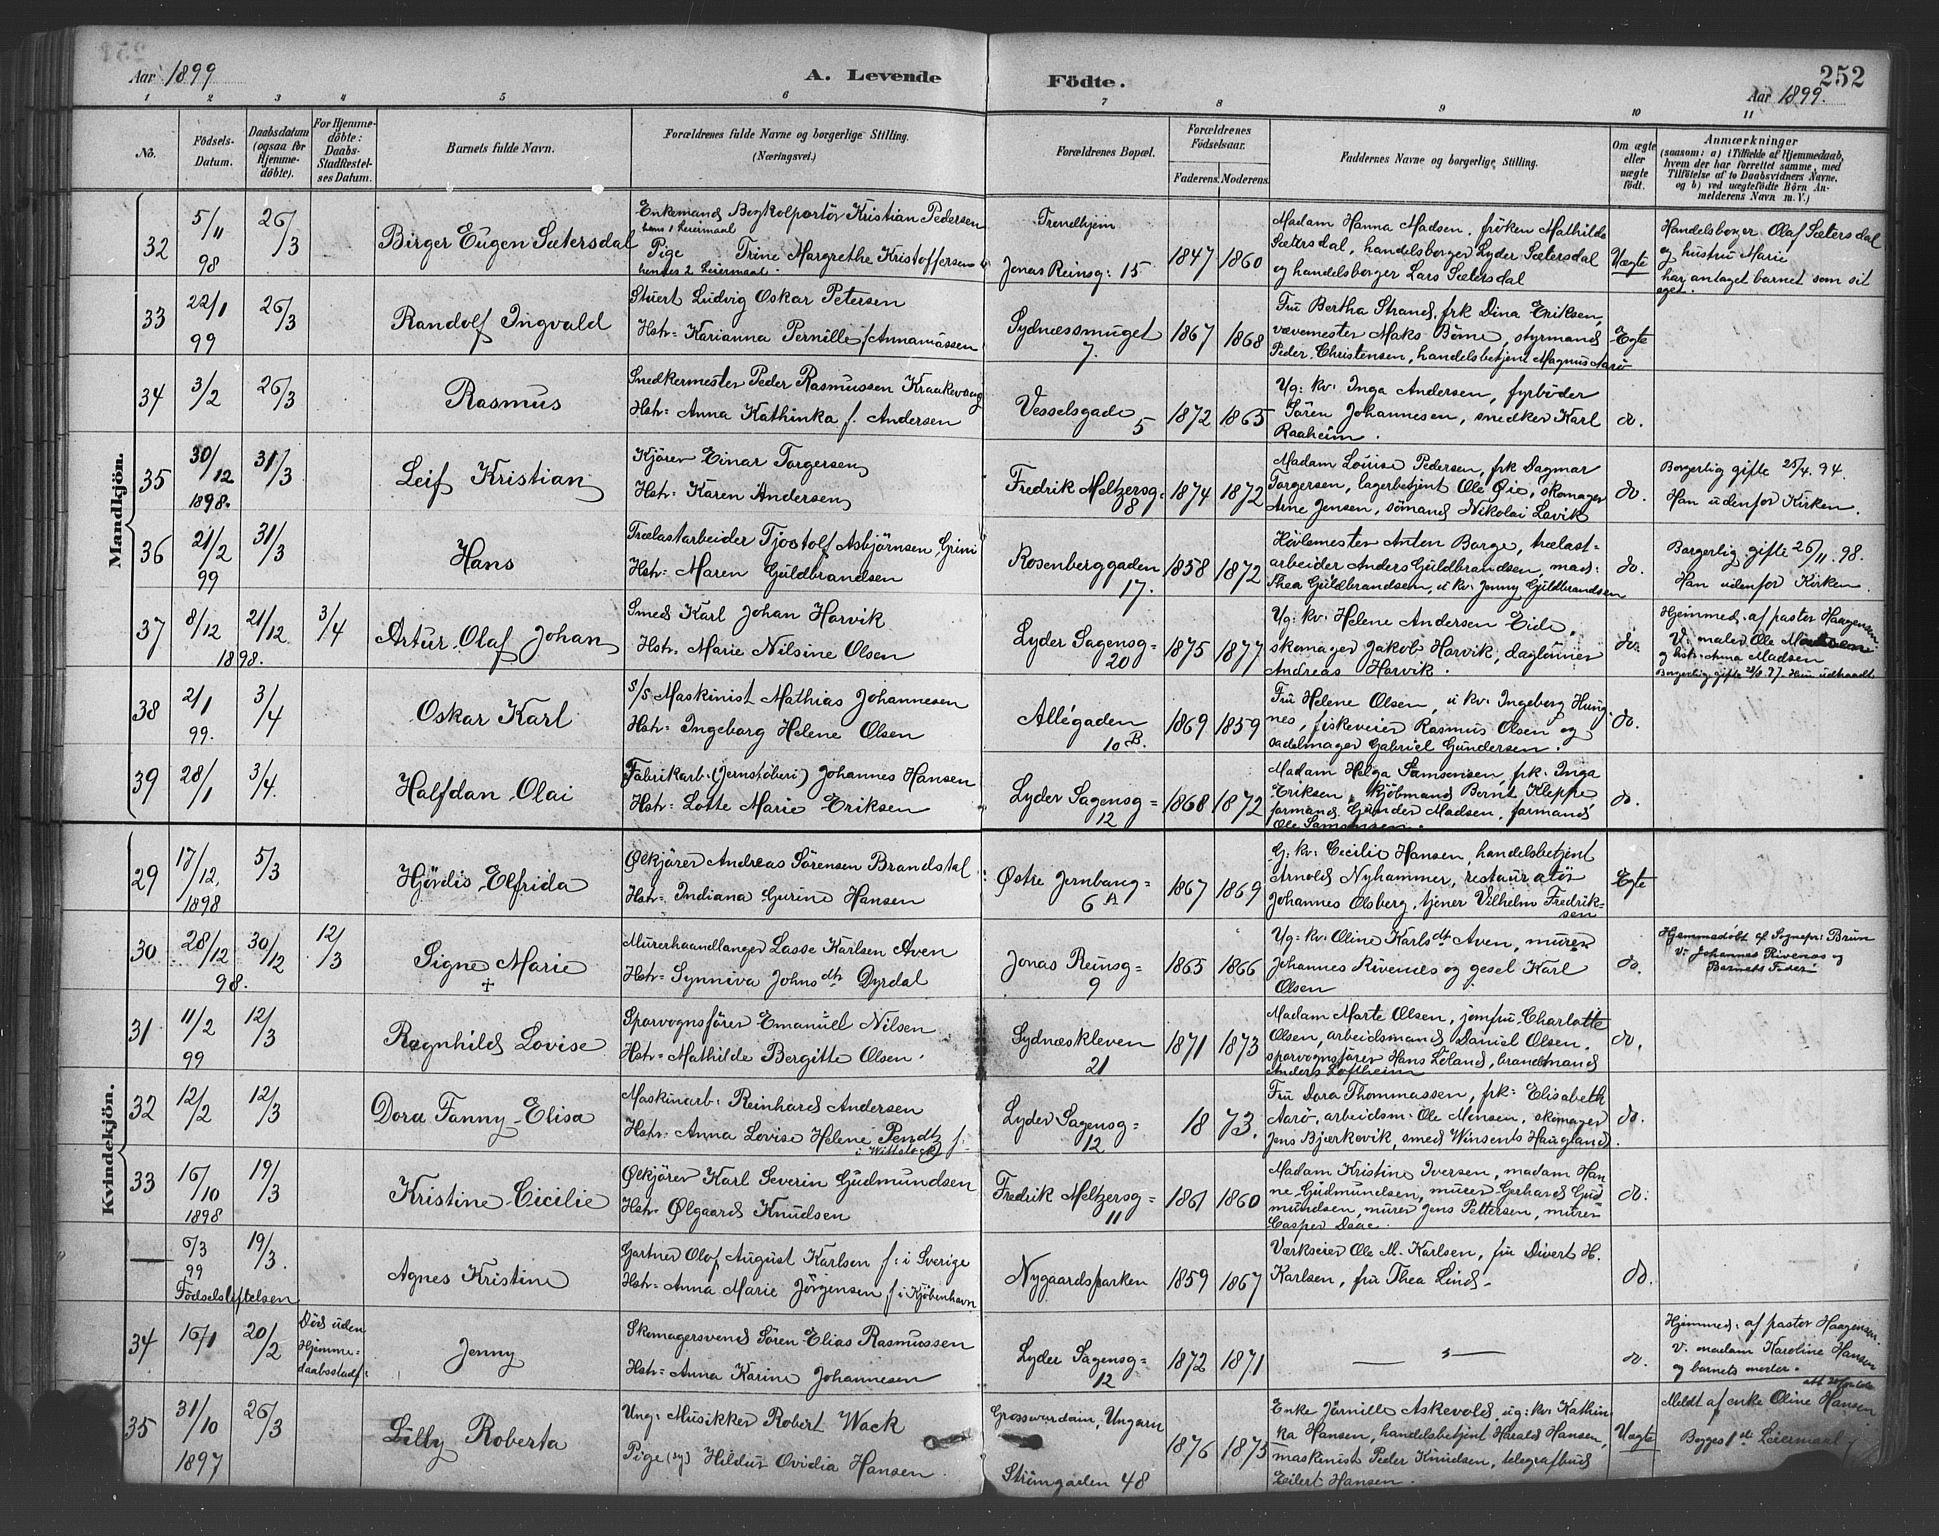 252
Aar 1899
A. Levende Födte.
Aar 1899.
1 2 3 4 5 6 7 8 9 10 11
No.
Födsels-Datum.
Daabsdatum (ogsaa for Hjemmedöbte).
For Hjemmedöbte: Daabs-Stadfestelses Datum.
Barnets fulde Navn.
Forældrenes fulde Navne og borgerlige Stilling. (Næringsvei.)
Forældrenes Bopæl.
Forældrenes Födselsaar.
Faderens. Moderens.
Faddernes Navne og borgerlige Stilling.
Om ægte eller uægte födt.
Anmærkninger
(saasom: a) i Tilfælde af Hjemmedaab, hvem der har forrettet samme, med Tilföielse af to Daabsvidners Navne. og b) ved uægtefödte Börn Anmelderens Navn m. V.)
Mandkjön.
32 5/11 98 26/3
Birger Eugen Sætersdal
Enkemand Bogkolportör Kristian Pedersen
hans 1 Leiermaal
Pige Trine Margrethe Kristoffersen
hendes 2 Leiermaal.
Trondhjem
Jonas Reinsg: 15
1847 1860
Madam Hanna Madsen, fröken Mathilde
Sætersdal, handelsborger Lyder Sætersdal
og handelsborger Lars Sætersdal
Uægte
Handelsborger Olaf Sætersdal
og hustru Marie
har antaget barnet som sit
eget.
33 22/1 99 26/3
Randolf Ingvald
Stuert Ludvig Oskar Petersen
Hstr: Karianna Pernille f Annamassen
Sydnæssmuget
7.
1867 1868
Fru Bertha Strand, frk Dina Eriksen,
vævemester Maks Börne, styrmand
Peder Christensen, handelsbetjent Magnus Aarö
Egte
34 3/2 26/3
Rasmus
Snedkermester Peder Rasmussen Kraakevaag
Hstr: Anna Kathinka f. Andersen
Vesselsgade
5
1872 1865
Ug: kv: Inga Andersen, fyrböder
Sören Johannesen, snedker Karl
Raaheim.
do.
35 30/12 1898. 31/3
Leif Kristian
Kjörer Einar Torgersen
Hstr: Karen Andersen
Fredrik Meltzersg:
8
1874 1872
Madam Louise Pedersen, frk Dagmar
Torgersen, lagerbetjent Ole Øie, skomager
Arne Jensen, sömand Nikolai Lavik
do.
Borgerlig gifte 25/4. 94.
Han udenfor Kirken.
36 21/2 99 31/3
Hans
Trælastarbeider Tjostolf Asbjörnsen Grini
Hstr: Maren Guldbrandsen
Rosenberggaden
17.
1858 1872
Hövlemester Anton Borge, trælast=
arbeider Anders Guldbrandsen, mad:
Thea Guldbrandsen, u kv. Jenny Guldbrandsen
do.
Borgerlig gifte 26/11 98.
Han udenfor Kirken
37 8/12 21/12 1898. 3/4
Artur Olaf Johan
Smed Karl Johan Harvik
Hstr: Marie Nilsine Olsen
Lyder Sagensg=
20
1875 1877
Ug: kv: Helene Andersen Eide,
skomager Jakob Harvik, daglönner
Andreas Harvik.
do:
Hjemmed. af pastor Haagensen
V: maler Ole
og hstr. Anna Madsen
Borgerlig gifte 97. Hun udtraadt
38 21/1 99. 3/4
Oskar Karl
s/s Maskinist Mathias Johannesen
Hstr: Ingeborg Helene Olsen
Allégaden
10 B.
1869 1859
Fru Helene Olsen, u kv: Ingeberg Hung-
nes, fiskeveier Rasmus Olsen og
sadelmager Gabriel Gundersen.
do.
39 28/1 3/4.
Halfdan Olai
Fabrikarb. (Jernstöberi) Johannes Hansen
Hstr: Lotte Marie Eriksen
Lyder Sagensg=
12
1868 1872
Madam Helga Samsonsen, frk. Inga
Eriksen, kjöbmand Bernt Kleppe
formand Gunder Madsen, formand
Ole Samsonsen.
do.
Kvindekjön.
29 17/12 1898 5/3
Hjördis Elfrida
Ølkjörer Andreas Sörensen Brandstal
Hstr: Indiana Gurine Hansen
Østre Jernbaneg=
6 A
1867 1869
G: kv: Cecilie Hansen, handelsbetjent
Arnold Nyhammer, restauratör
Johannes Olsberg, tjener Vilhelm Fredrik-
sen
Egte
30 28/12 30/12 98. 12/3
Signe Marie
+
Murerhaandlanger Lasse Karlsen Aven
Hstr: Synniva Johns dtr Dyrdal
Jonas Reinsg=
9
1865 1866
Ug: kv: Oline Karls dt Aven, murer
Johannes Rivenes og gesel Karl
Olsen
do.
Hjemmedöbt af Sognepr: Brun
V: Johannes Rivenes og
Barnets Fader
31 11/2 99 12/3
Ragnhild Lovise
Sporvognsförer Emanuel Nilsen
Hstr: Mathilde Bergitte Olsen.
Sydnæskleven
21
1871 1873
Madam Marte Olsen, jomfru Charlotte
Olsen, arbeidsmand Daniel Olsen,
sporvognsförer Hans Leland, brandmand
Anders Loftheim
do.
32 12/2 12/3
Dora Fanny Elisa
Maskinarb. Reinhard Andersen
Hstr: Anna Lovise Helene Pendt f.
i Wittstock
Lyder Sagensg=
12
18 73.
Fru Dora Thommassen, frk: Elisabeth
Aarö, arbeidsm. Ole Monsen, skomager
Jens Bjærkevik, smed Winsents Haugland
do.
33 16/10 1898 19/3
Kristine Cicilie
Ølkjörer Karl Severin Gudmundsen
Hstr: Ølgaard Knudsen
Fredrik Meltzersg=
11
1861 1860
Madam Kristine Iversen, madam Han-
ne Gudmundsen, murer Gerhard Gud-
mundsen, murer Jens Pettersen, murer
Casper Daae.
do.
— 6/3 99 19/3.
Födselsliftelsen
Agnes Kristine
Gartner Olof August Karlsen f: i Sverige
Hstr: Anna Marie Jörgensen f i Kjöbenhavn
Nygaardsparken
1859 1867
Værkseier Ole M. Karlsen, fru Divert H.
Karlsen, fru Thea Lind.
do.
34 16/1 20/2
Död uden
Hjemme-
daabsstadf:
Jenny
Skomagersvend Sören Elias Rasmussen
Hstr: Anna Karine Johannesen
Lyder Sagensg=
12
1872 1871
do.
Hjemmed: af pastor Haagensen.
V. madam Karoline Hansen
og barnets moder.
35 31/10 1897 26/3
Lilly Roberta
Ung: Musikker Robert Wack
Pige (sy) Hildur Ovidia Hansen.
Grosswardain, Ungarn
Strömgaden 48
1876 1875
Enke Jörnille Askevold, ug: kv: Kathin-
ka Hansen, handelsbetjent Harald Hansen,
maskinist Peder Knudsen, telegrafbud
Eilert Hansen.
Uægte
Meldt af enke Oline Hansen
Begges 1ste Leiermaal